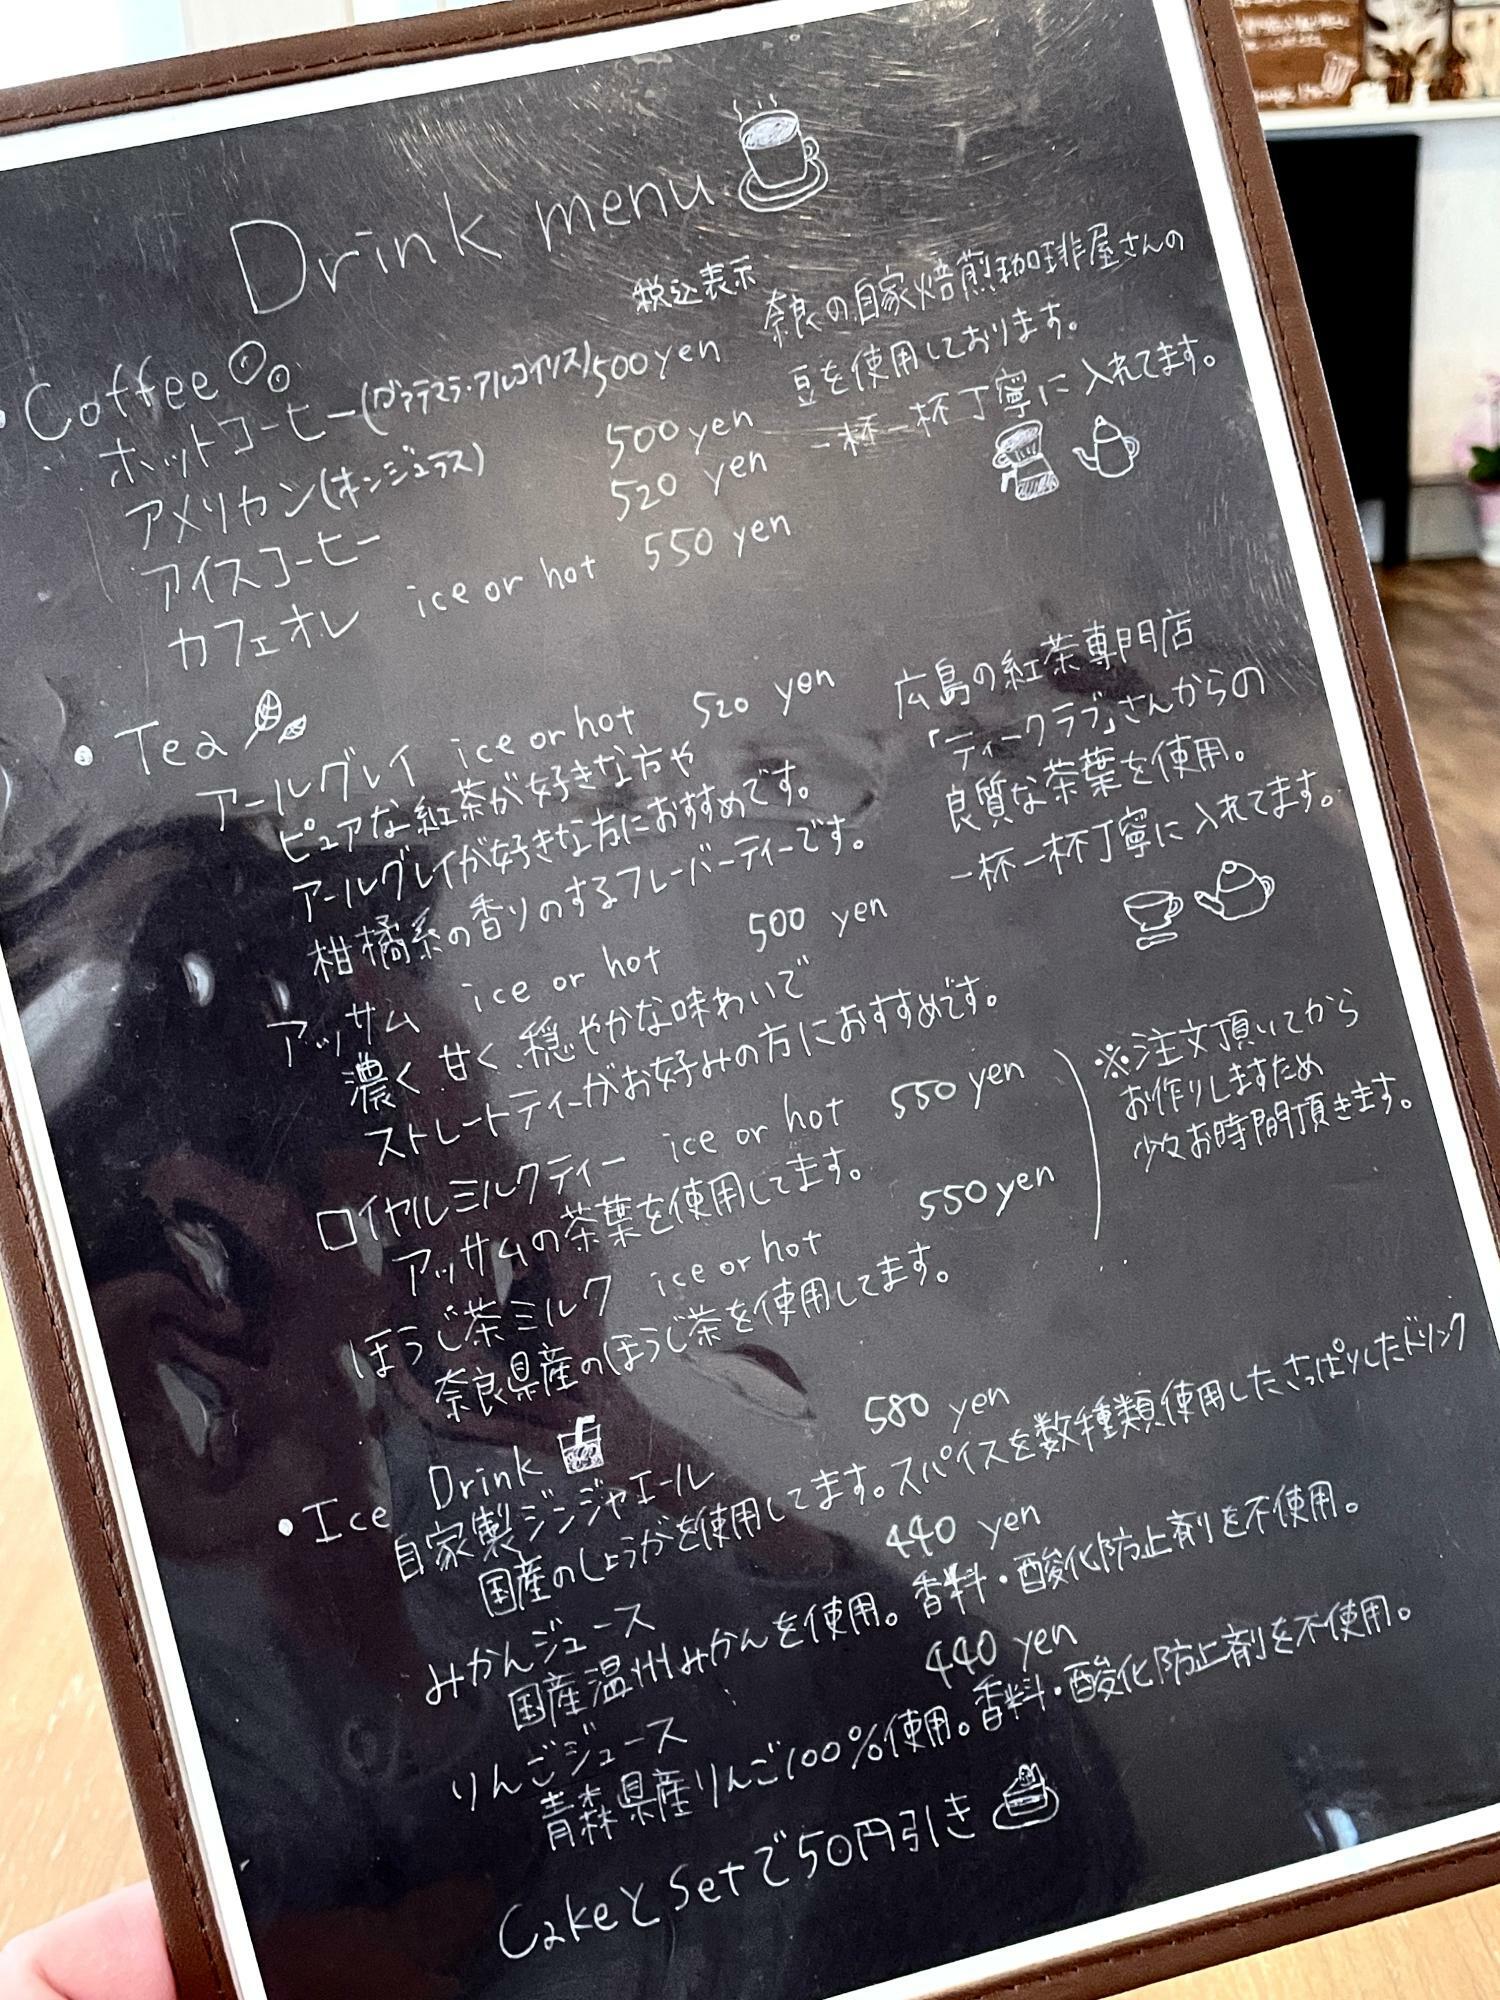 Drink menu
税込表示
・Coffee
ホットコーヒー(グァテマラ・アルコイリス) 500yen
アメリカン(ホンジュラス) 500 yen
アイスコーヒー 520 yen
カフェオレ ice or hot 550 yen
奈良の自家焙煎珈琲屋さんの
豆を使用しております。
一杯一杯丁寧に入れてます。
・Tea
アールグレイ ice or hot 520 yen
ピュアな紅茶が好きな方や
アールグレイが好きな方におすすめです。
柑橘系の香りのするフレーバーティーです。
アッサム ice or hot 500 yen
濃く甘く穏やかな味わいで
ストレートティーがお好みの方におすすめです。
ロイヤルミルクティー ice or hot 550 yen
アッサムの茶葉を使用してます。
ほうじ茶ミルク ice or hot 550 yen
奈良県産のほうじ茶を使用してます。
広島の紅茶専門店
「ティークラブ」さんからの
良質な茶葉を使用。
一杯一杯丁寧に入れてます。
※注文頂いてから
お作りしますため
少々お時間頂きます。
・Ice Drink
自家製ジンジャエール 580 yen
国産のしょうがを使用してます。スパイスを数種類使用したさっぱりしたドリンク
みかんジュース 440 yen
国産温州みかんを使用。香料・酸化防止剤を不使用。
りんごジュース 440 yen
青森県産りんご100%使用。香料・酸化防止剤を不使用。
CakeとSetで50円引き